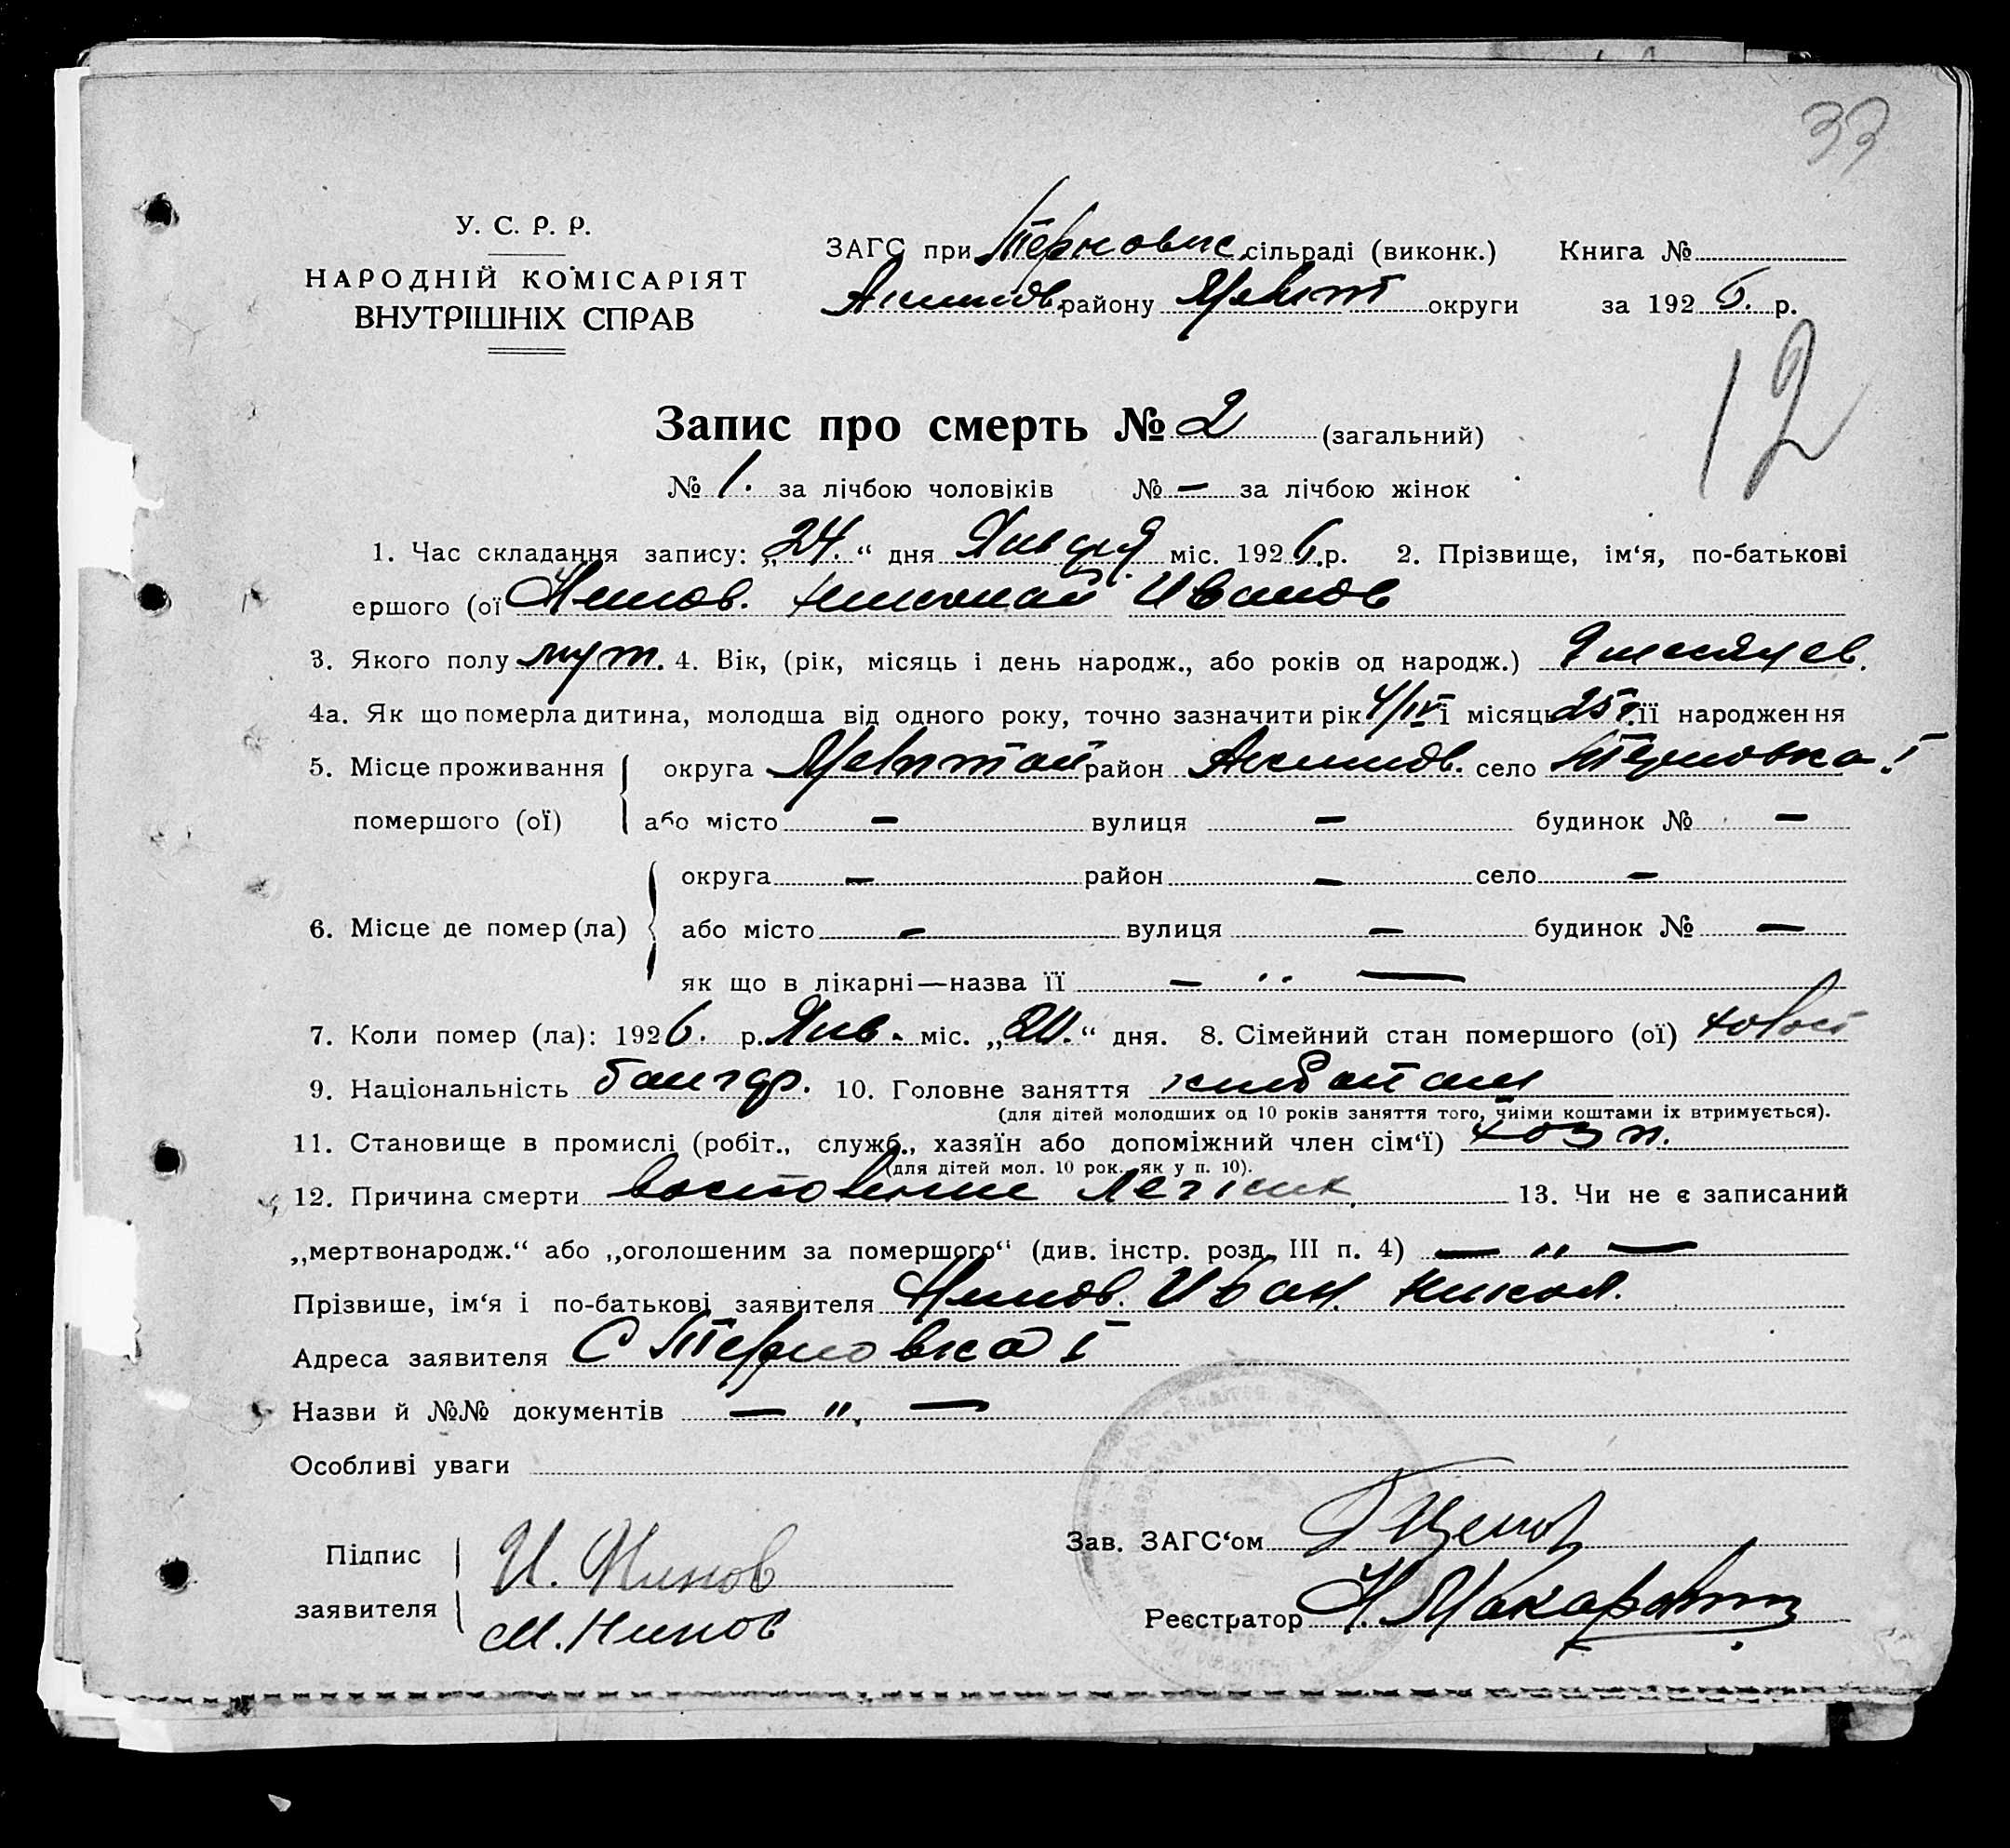 33
У. С. Р. Р.
НАРОДНІЙ КОМІСАРІЯТ
ВНУТРІШНІХ СПРАВ
ЗАГС при Терновск. сільраді (виконк.) Книга №
Акимов. району Мелит округи за 1926. р.
12
Запис про смерть № 2 (загальний)
№ 1. за лічбою чоловіків № — за лічбою жінок
1. Час складання запису: „24.“ дня Января міс. 1926.р. 2. Прізвище, ім‘я, по-батькові
ершого (ої Нинов. Николай Иванов
3. Якого полу муж. 4. Вік, (рік, місяць і день народж., або років од народж.) 9 месяцев.
4а. Як що померла дитина, молодша від одного року, точно зазначити рік 4/IV і місяць 25 г. її народження
5. Місце проживання округа Мелитоп район Акимов. село Терновка I
помершого (ої) або місто — вулиця — будинок № —
округа — район — село —
6. Місце де помер (ла) або місто — вулиця — будинок № —
як що в лікарні—назва її — ,, —
7. Коли помер (ла): 1926. р. Янв. міс. „ “ дня. 8. Сімейний стан помершого (ої) холост
9. Національність болгар. 10. Головне заняття хлебопаш
(для дітей молодших од 10 років заняття того, чиіми коштами їх втримується).
11. Становище в промислі (робіт., служб., хазяїн або допоміжний член сім‘ї) хозя.
(для дітей мол. 10 рок. як у п. 10).
12. Причина смерти восполение легких 13. Чи не є записаний
„мертвонародж.“ або „оголошеним за помершого“ (див. інстр. розд. III п. 4) — ,, —
Прізвише, ім‘я і по-батькові заявителя Нинов. Иван. Никол.
Адреса заявителя С Терновка I
Назви й №№ документів — ,, —
Особливі уваги
Підпис И. Нинов Зав. ЗАГС‘ом
заявителя М. Нинов Реєстратор